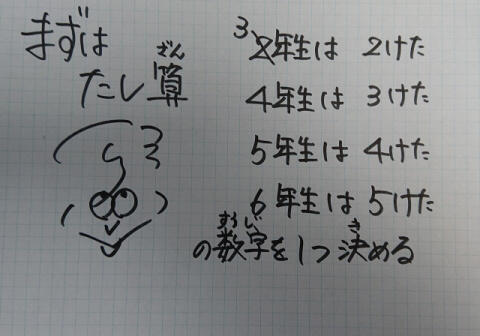 まずは
たし算
ざん
3、2年生は 2けた
4年生は 3けた
5年生は 4けた
6年生は 5けた
すうじ き
の数字を1つ決める